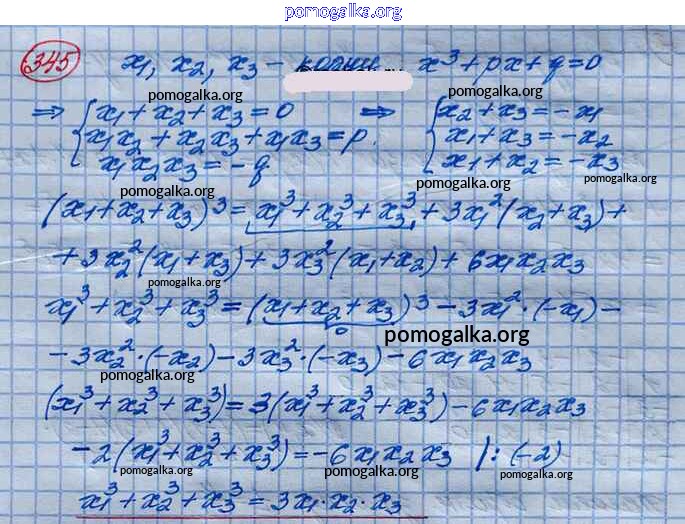 pomogalka.org
345 x₁, x₂, x₃ – x³ + px + q = 0
pomogalka.org
⇒ { x₁ + x₂ + x₃ = 0 ⇒ { x₂ + x₃ = –x₁
x₁x₂ + x₂x₃ + x₁x₃ = p. x₁ + x₃ = –x₂
x₁x₂x₃ = –q x₁ + x₂ = –x₃
pomogalka.org pomogalka.org pomogalka.org
(x₁ + x₂ + x₃)³ = x₁³ + x₂³ + x₃³ + 3x₁²(x₂ + x₃) +
+ 3x₂²(x₁ + x₃) + 3x₃²(x₁ + x₂) + 6x₁x₂x₃
pomogalka.org
x₁³ + x₂³ + x₃³ = (x₁ + x₂ + x₃)³ – 3x₁²·(–x₁) –
0
pomogalka.org
– 3x₂²·(–x₂) – 3x₃²·(–x₃) – 6x₁x₂x₃
pomogalka.org
(x₁³ + x₂³ + x₃³) = 3(x₁³ + x₂³ + x₃³) – 6x₁x₂x₃
–2(x₁³ + x₂³ + x₃³) = –6x₁x₂x₃ |: (–2)
pomogalka.org pomogalka.org pomogalka.org
x₁³ + x₂³ + x₃³ = 3x₁·x₂·x₃